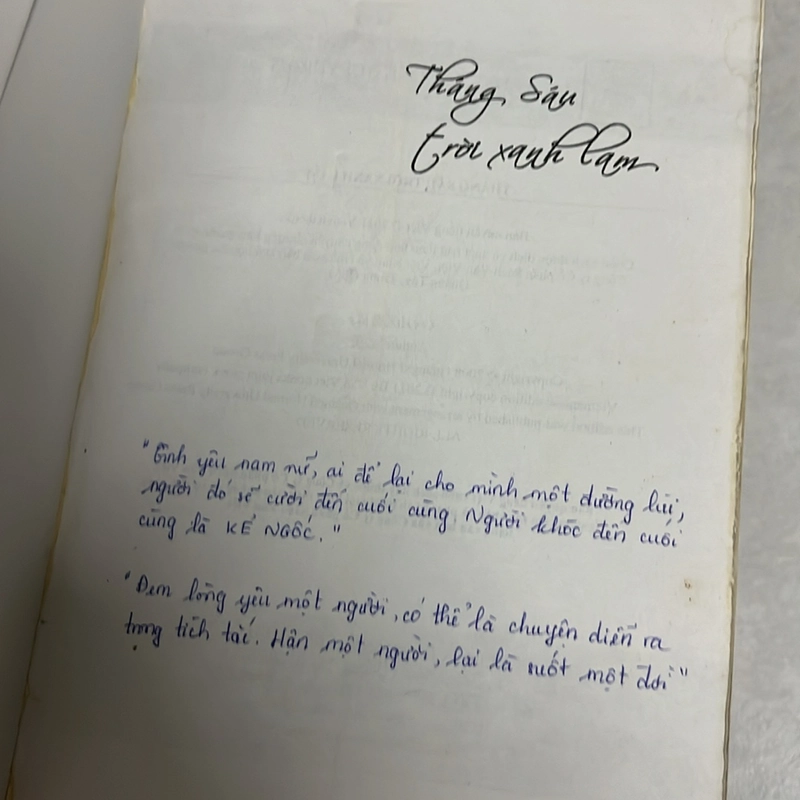 Tháng Sáu
trời xanh lam
"Tình yêu nam nữ, ai để lại cho mình một đường lùi,
người đó sẽ cười đến cuối cùng. Người khóc đến cuối
cùng là KẺ NGỐC."
"Đem lòng yêu một người, có thể là chuyện diễn ra
trong tích tắc. Hận một người, lại là suốt một đời"